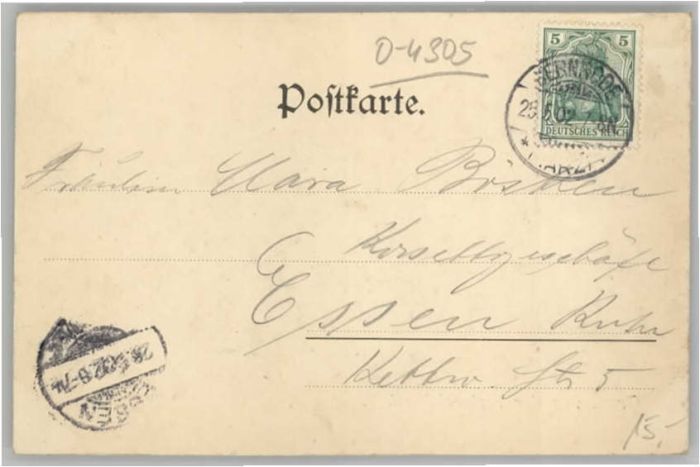 0-4305
5 5
DEUTSCHES REICH
GERNRODE
25.5.02
* (HARZ) *
Postkarte.
Fräulein Clara Bösken
Korsettgeschäft
Essen Ruhr
Kettw. Str 5
ESSEN
26.5.02.6-7
15.